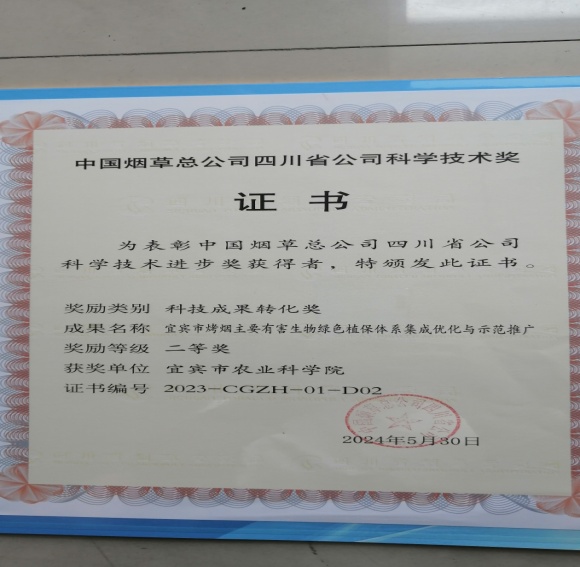 中国烟草总公司四川省公司科学技术奖
证书
为表彰中国烟草总公司四川省公司
科学技术进步奖获得者，特颁发此证书。
奖励类别 科技成果转化奖
成果名称 宜宾市烤烟主要有害生物绿色植保体系集成优化与示范推广
奖励等级 二等奖
获奖单位 宜宾市农业科学院
证书编号 2023-CGZH-01-D02
2024年5月30日